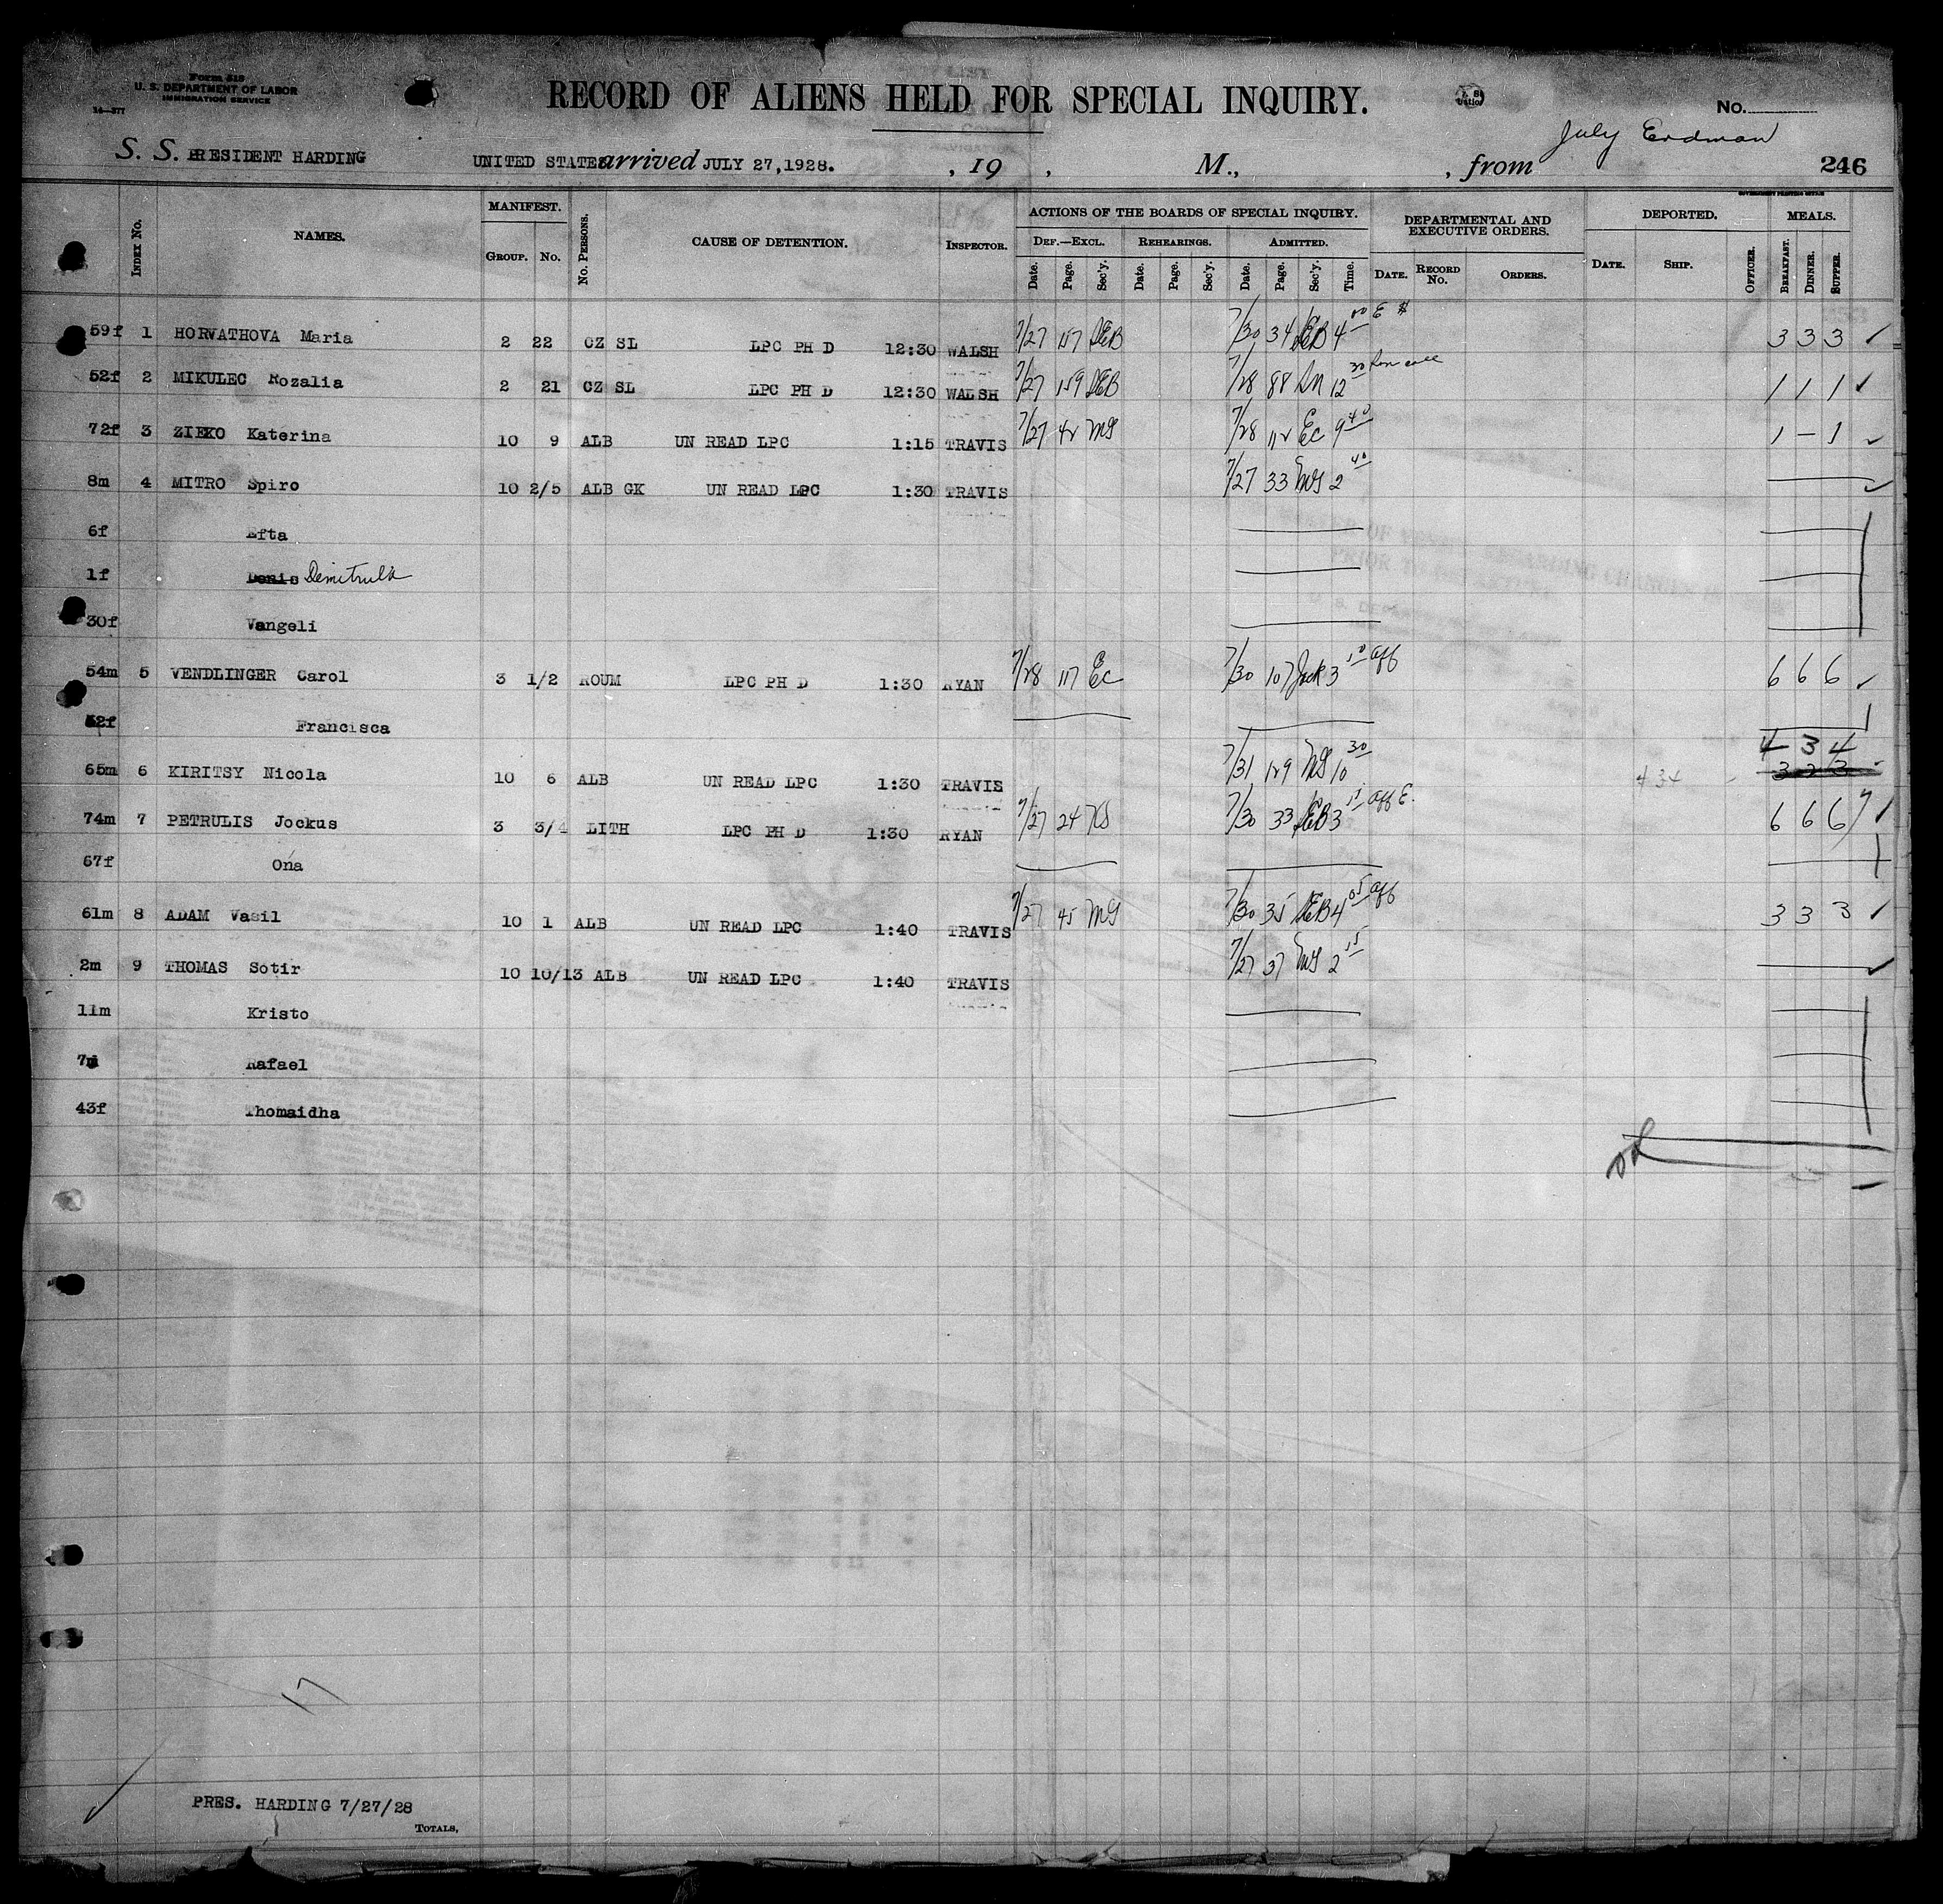 Form 519
U. S. DEPARTMENT OF LABOR
IMMIGRATION SERVICE
14—377
RECORD OF ALIENS HELD FOR SPECIAL INQUIRY.
No.
July Erdman
S. S. PRESIDENT HARDING UNITED STATES arrived JULY 27,1928. , 19 , M., , from 246
GOVERNMENT PRINTING OFFICE
INDEX No. NAMES. MANIFEST. GROUP. No. No. PERSONS. CAUSE OF DETENTION. INSPECTOR. ACTIONS OF THE BOARDS OF SPECIAL INQUIRY. DEF.—EXCL. REHEARINGS. ADMITTED. DEPARTMENTAL AND EXECUTIVE ORDERS. DEPORTED. MEALS.
Date. Page. Sec'y. Date. Page. Sec'y. Date. Page. Sec'y. Time. DATE. RECORD No. ORDERS. DATE. SHIP. OFFICER. BREAKFAST. DINNER. SUPPER.
59f 1 HORVATHOVA Maria 2 22 CZ SL LPC PH D 12:30 WALSH 7/27 157 DEB 7/30 34 DEB 4 00 E $ 3 3 3 ✓
52f 2 MIKULEC Rozalia 2 21 CZ SL LPC PH D 12:30 WALSH 7/27 159 DEB 7/28 88 12 30 1 1 1 ✓
72f 3 ZIEKO Katerina 10 9 ALB UN READ LPC 1:15 TRAVIS 7/27 42 MG 7/28 112 EC 9 40 1 — 1 ✓
8m 4 MITRO Spiro 10 2/5 ALB GK UN READ LPC 1:30 TRAVIS 7/27 33 MG 2 40 ✓
6f Efta
1f Denis Dimitrula
30f Vangeli
54m 5 VENDLINGER Carol 3 1/2 ROUM LPC PH D 1:30 RYAN 7/28 117 EC 7/30 107 3 10 aff 6 6 6 ✓
52f Francisca
4 3 4
65m 6 KIRITSY Nicola 10 6 ALB UN READ LPC 1:30 TRAVIS 7/31 129 MG 10 30 4 34 3 2 3
74m 7 PETRULIS Jockus 3 3/4 LITH LPC PH D 1:30 RYAN 7/27 24 7/30 33 DEB 3 15 aff E. 6 6 6 ✓
67f Ona
61m 8 ADAM Vasil 10 1 ALB UN READ LPC 1:40 TRAVIS 7/27 45 MG 7/30 35 DEB 4 05 aff 3 3 3 ✓
2m 9 THOMAS Sotir 10 10/13 ALB UN READ LPC 1:40 TRAVIS 7/27 37 MG 2 55 ✓
11m Kristo
7m Rafael
43f Thomaidha
17
PRES. HARDING 7/27/28
TOTALS,